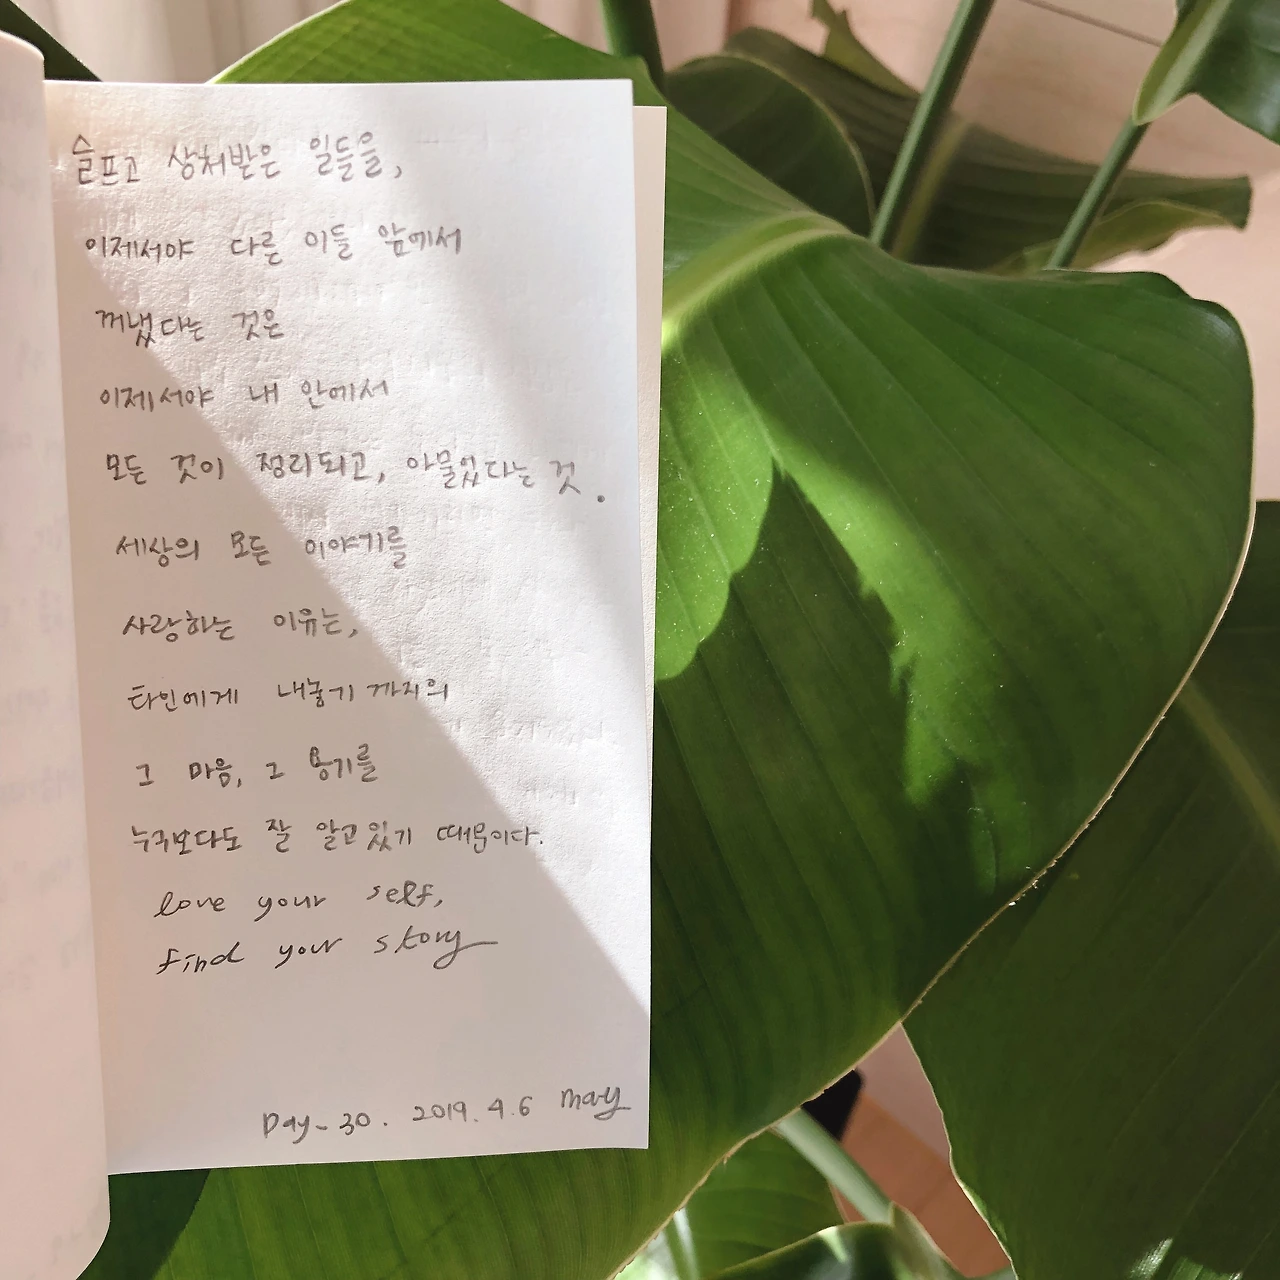 슬프고 상처받은 일들을,
이제서야 다른 이들 앞에서
꺼냈다는 것은
이제서야 내 안에서
모든 것이 정리되고, 아물었다는 것.
세상의 모든 이야기를
사랑하는 이유는,
타인에게 내놓기 까지의
그 마음, 그 용기를
누구보다도 잘 알고있기 때문이다.
love your self,
find your story
Day-30. 2019.4.6 may